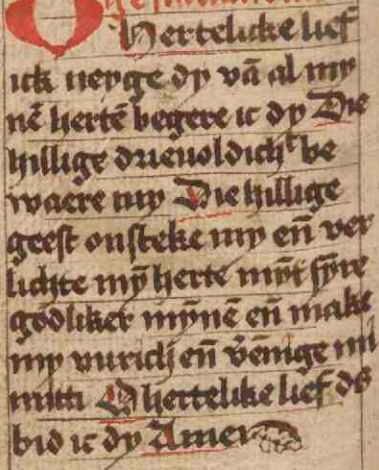 O
Hertelicke lief
ick neyge dy vā al my
nē hertē begere ic dy Die
hillige drieuoldicht be
waere my Die hillige
geest onsteke my eñ ver
lichte mȳ herte myt sȳre
godliker mȳnē eñ make
my vurich eñ v̄ēnige mi
mitti O hertelike lief ds
bid ic dy Amen